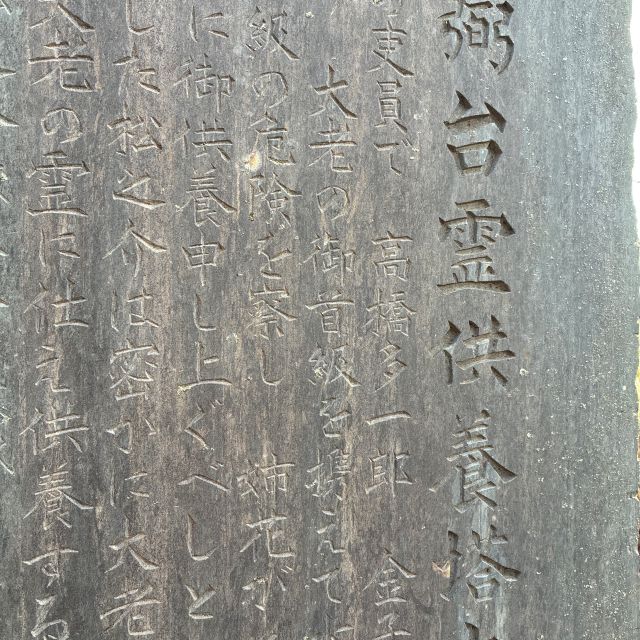 弼台霊供養塔
吏員で 高橋多一郎 金子
大老の御首級を携えて
級の危険を察し 姉花が
に御供養申し上ぐべしと
した松之介は密かに大老
大老の霊に仕え供養する